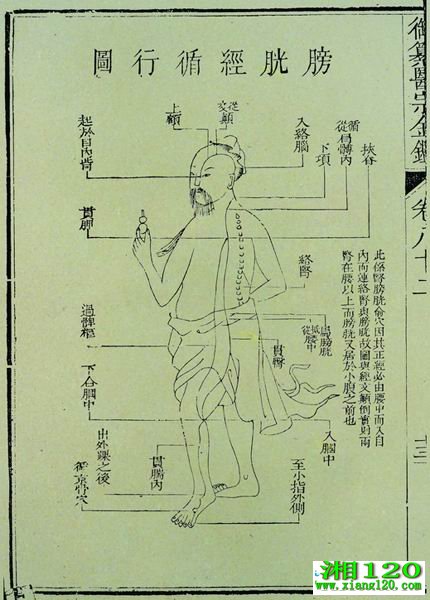 御纂醫宗金鑑
卷八十二
膀胱經循行圖
挾脊
循肩髆內
從
下項
入絡腦
從巔
交
上額
起於目內眥
貫胛
絡腎
此係腎膀胱俞穴因其正經必由腰中而入自
內而連絡腎與膀胱故圖與經文顛倒實則兩
腎在腰以上而膀胱又居於小腹之前也
屬膀胱
從腰中
貫臀
過髀樞
下合膕中
入膕中
出外踝之後
貫腨內
循京骨穴
至小指外側
十三
湘120
www.xiang120.com